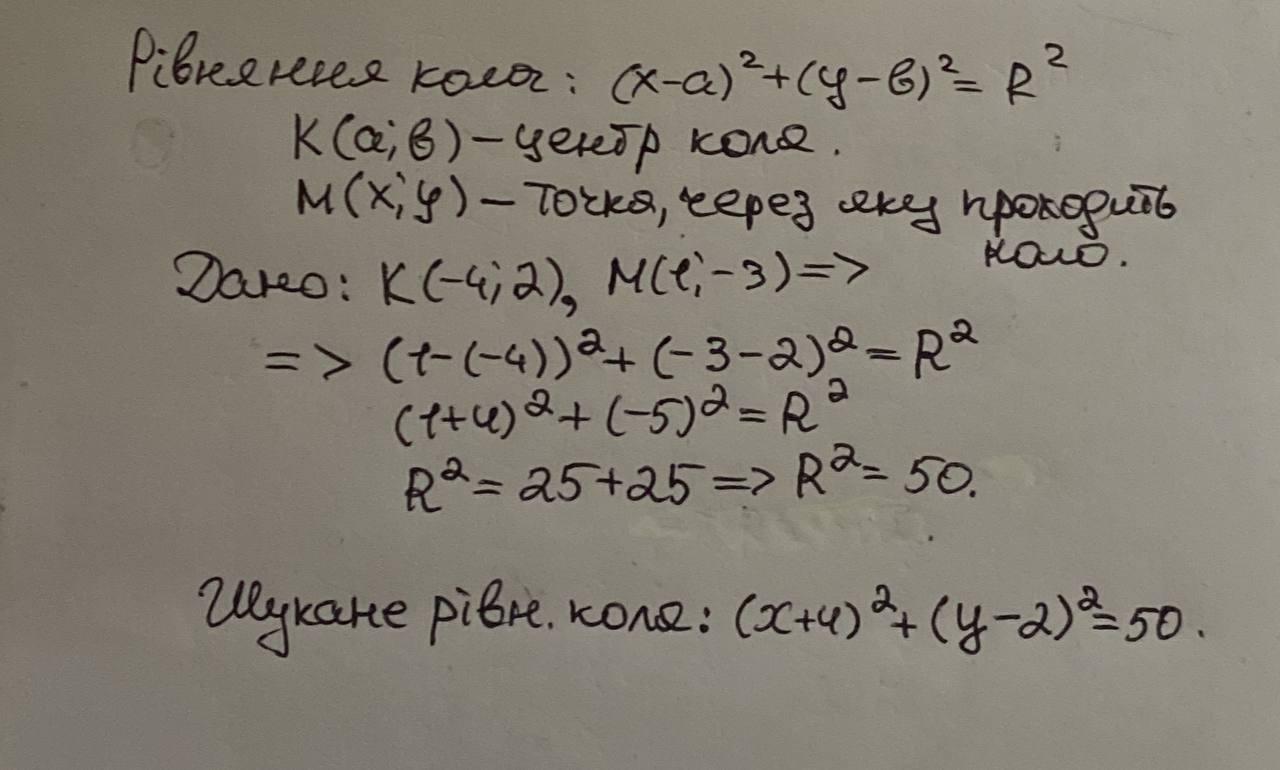 Рівняння кола: (x-a)²+(y-в)²= R²
K(a;в)-центр кола.
M(x;y)-точка, через яку проходить
коло.
Дано: K(-4;2), M(1;-3)=>
=> (1-(-4))²+(-3-2)²=R²
(1+4)²+(-5)²=R²
R²=25+25=>R²=50.
Шукане рівн. кола: (x+4)²+(y-2)²=50.